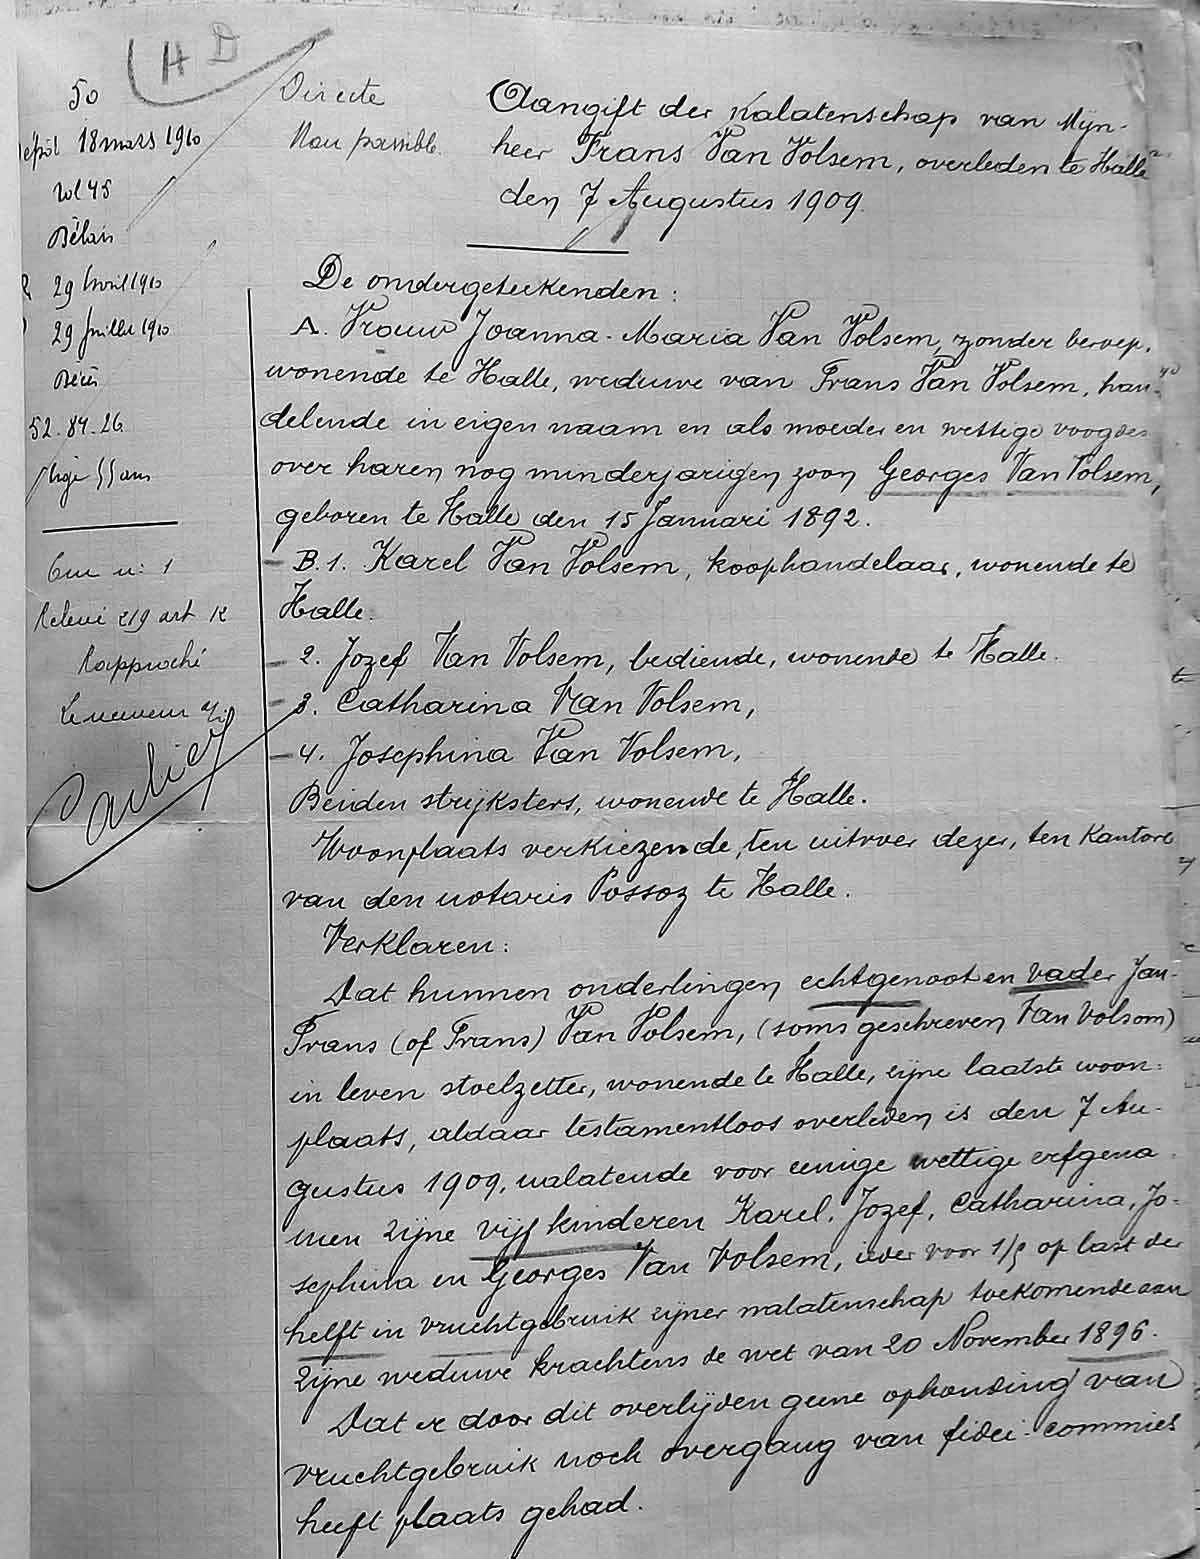 H D
50
Dépôt 18 mars 1910
vol 45
Délais
29 Avril 1910
29 Juillet 1910
Décès
52.84.26
âgé 55 ans
6me n: 1
Relevé 219 art 12
Rapproché
Le receveur
Directe
Non passible.
Aangift der nalatenschap van Mijn-
heer Frans Van Volsem, overleden te Halle
den 7 Augustus 1909.
De ondergeteekenden:
A. Vrouw Joanna-Maria Van Volsem, zonder beroep,
wonende te Halle, weduwe van Frans Van Volsem, han-
delende in eigen naam en als moeder en wettige voogdes
over haren nog minderjarigen zoon Georges Van Volsem,
geboren te Halle den 15 Januari 1892.
- B. 1. Karel Van Volsem, koophandelaar, wonende te
Halle.
- 2. Jozef Van Volsem, bediende, wonende te Halle.
- 3. Catharina Van Volsem,
- 4. Josephina Van Volsem,
Beiden strijksters, wonende te Halle.
Woonplaats verkiezende, ten uitvoer dezer, ten Kantore
van den notaris Possoz te Halle.
Verklaren:
Dat hunnen onderlingen echtgenoot en vader Jan-
Frans (of Frans) Van Volsem, (soms geschreven Van Volsom)
in leven stoelzetter, wonende te Halle, zijne laatste woon-
plaats, aldaar testamentloos overleden is den 7 Au-
gustus 1909, nalatende voor eenige wettige erfgena-
men zijne vijf kinderen Karel, Jozef, Catharina, Jo-
sephina en Georges Van Volsem, ieder voor 1/5 op last der
helft in vruchtgebruik zijner nalatenschap toekomende aan
zijne weduwe krachtens de wet van 20 November 1896.
Dat er door dit overlijden geene ophouding van
vruchtgebruik noch overgang van fidei-commies
heeft plaats gehad.